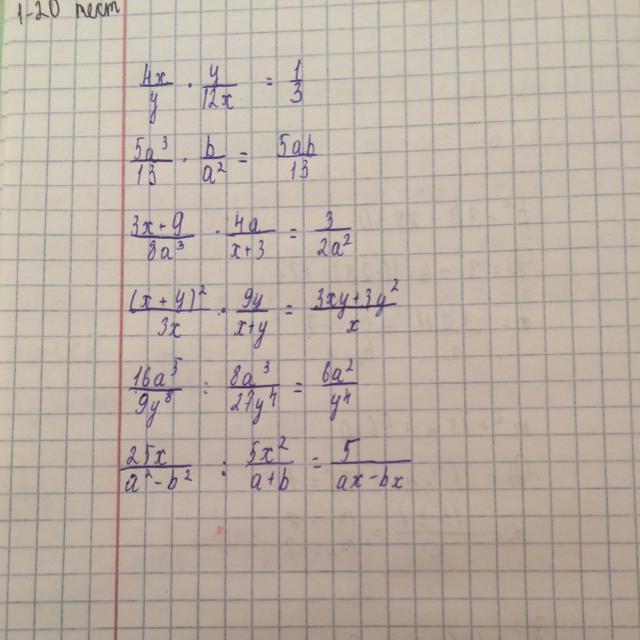 1-20 тест
4x/y · y/12x = 1/3
5a³/13 · b/a² = 5ab/13
3x+9/8a³ · 4a/x+3 = 3/2a²
(x+y)²/3x · 9y/x+y = 3xy+3y²/x
16a⁵/9y⁸ : 8a³/27y⁴ = 6a²/y⁴
25x/a²-b² : 5x²/a+b = 5/ax-bx